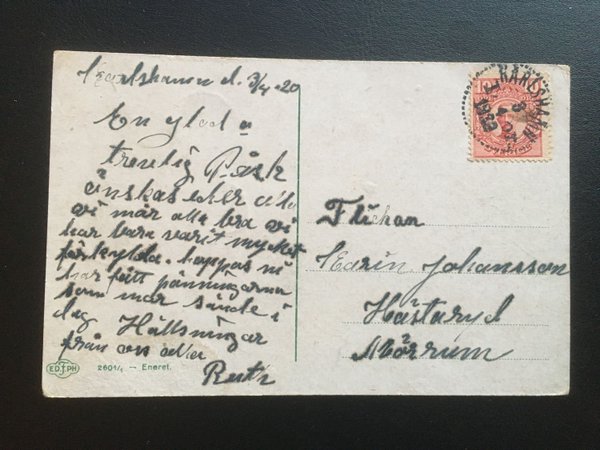 Karlshamn d. 3/4 -20
En glad o
trevlig Påsk
önskas eder alla
vi mår alla bra vi
har bara varit mycket
förkylda. hoppas ni
har fått pänningarna
som mor sände i
dag Hälsningar
från oss alla
Ruth
EDSPH
2601/1 — Eneret.
KARLSHAMN
Flickan
Karin Johansson
Hästaryd
Mörrum